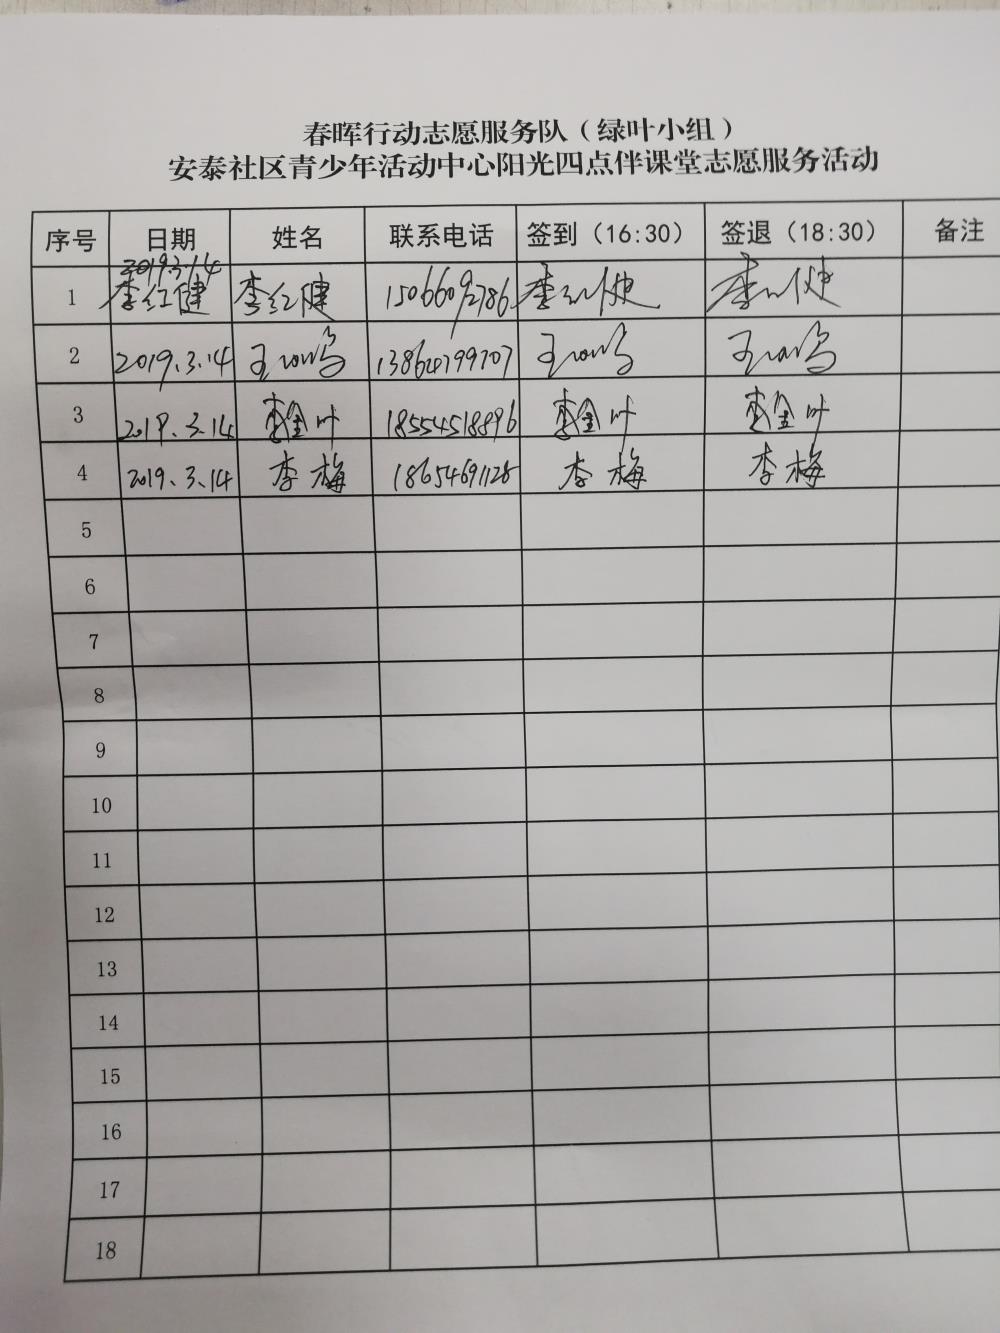 春晖行动志愿服务队（绿叶小组）
安泰社区青少年活动中心阳光四点伴课堂志愿服务活动
序号 日期 姓名 联系电话 签到（16:30） 签退（18:30） 备注
2019.3.14
1 李红健 李红健 15066092786 李红健 李红健
2 2019.3.14 王 13864799707 王 王
3 2019.3.14 李金叶 18554518896 李金叶 李金叶
4 2019.3.14 李梅 18654691128 李梅 李梅
5
6
7
8
9
10
11
12
13
14
15
16
17
18